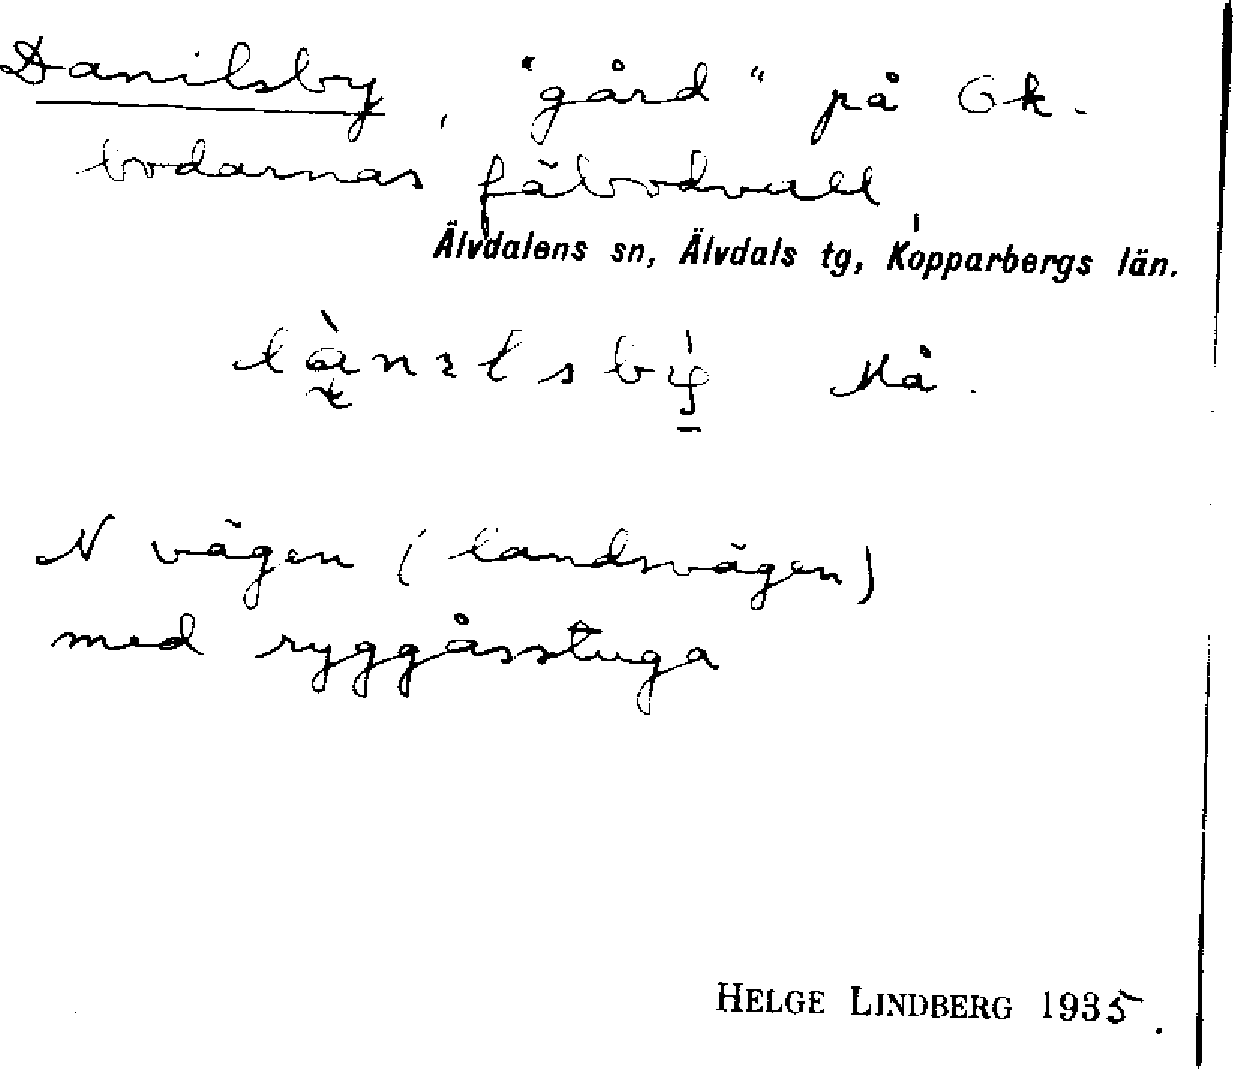 Danilsby, "gård" på Ok-
bodarnas fäbodvall,
Älvdalens sn, Älvdals tg, Kopparbergs län.
Må.
N vägen (landsvägen)
med ryggåsstuga
HELGE LINDBERG 1935.